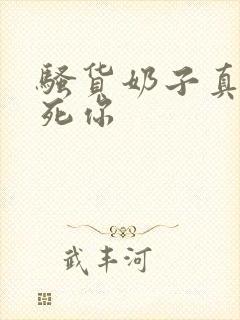 骚货奶子真
死你
武丰河